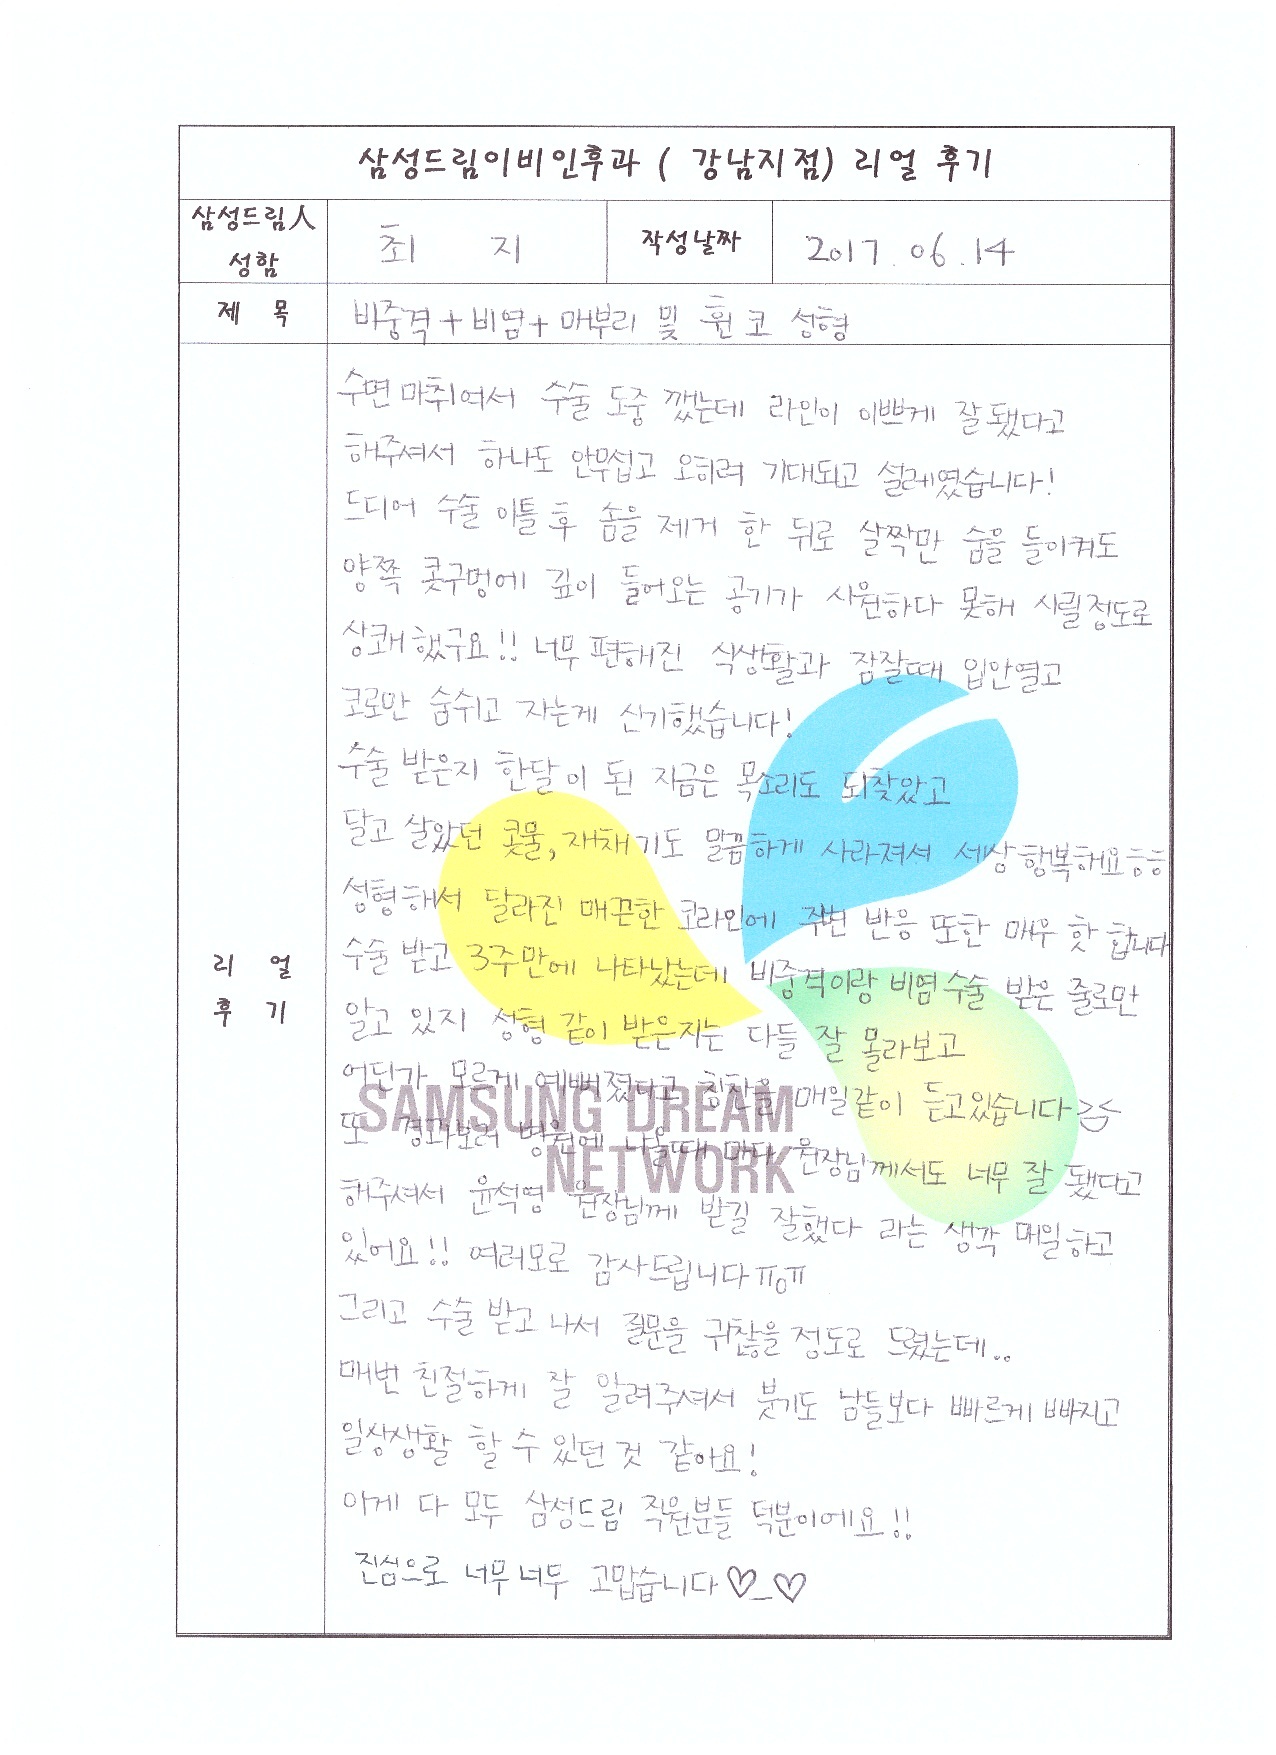 삼성드림이비인후과 ( 강남지점) 리얼 후기
삼성드림人 성함 최 지 작성날짜 2017.06.14
제 목 비중격+비염+매부리 및 휜 코 성형
리 얼 후 기
수면 마취여서 수술 도중 깼는데 라인이 이쁘게 잘 됐다고
해주셔서 하나도 안무섭고 오히려 기대되고 설레였습니다!
드디어 수술 이틀 후 솜을 제거 한 뒤로 살짝만 숨을 들이켜도
양쪽 콧구멍에 깊이 들어오는 공기가 시원하다 못해 시릴정도로
상쾌했구요!! 너무 편해진 식생활과 잠잘때 입안열고
코로만 숨쉬고 자는게 신기했습니다!
수술 받은지 한달이 된 지금은 목소리도 되찾았고
달고 살았던 콧물, 재채기도 말끔하게 사라져서 세상행복해요ㅎㅎ
성형해서 달라진 매끈한 코라인에 주변 반응 또한 매우 핫 합니다
수술 받고 3주만에 나타났는데 비중격이랑 비염수술 받은 줄로만
알고 있지 성형 같이 받은지는 다들 잘 몰라보고
어딘가 모르게 예뻐졌다고 칭찬을 매일같이 듣고있습니다
또 경과보러 병원에 나올때 마다 원장님께서도 너무 잘 됐다고
해주셔서 윤석영 원장님께 받길 잘했다 라는 생각 매일하고
있어요!! 여러모로 감사드립니다ㅠoㅠ
그리고 수술 받고 나서 질문을 귀찮을 정도로 드렸는데..
매번 친절하게 잘 알려주셔서 붓기도 남들보다 빠르게 빠지고
일상생활 할 수 있던 것 같아요!
이게 다 모두 삼성드림 직원분들 덕분이에요!!
진심으로 너무너무 고맙습니다♡_♡
SAMSUNG DREAM
NETWORK